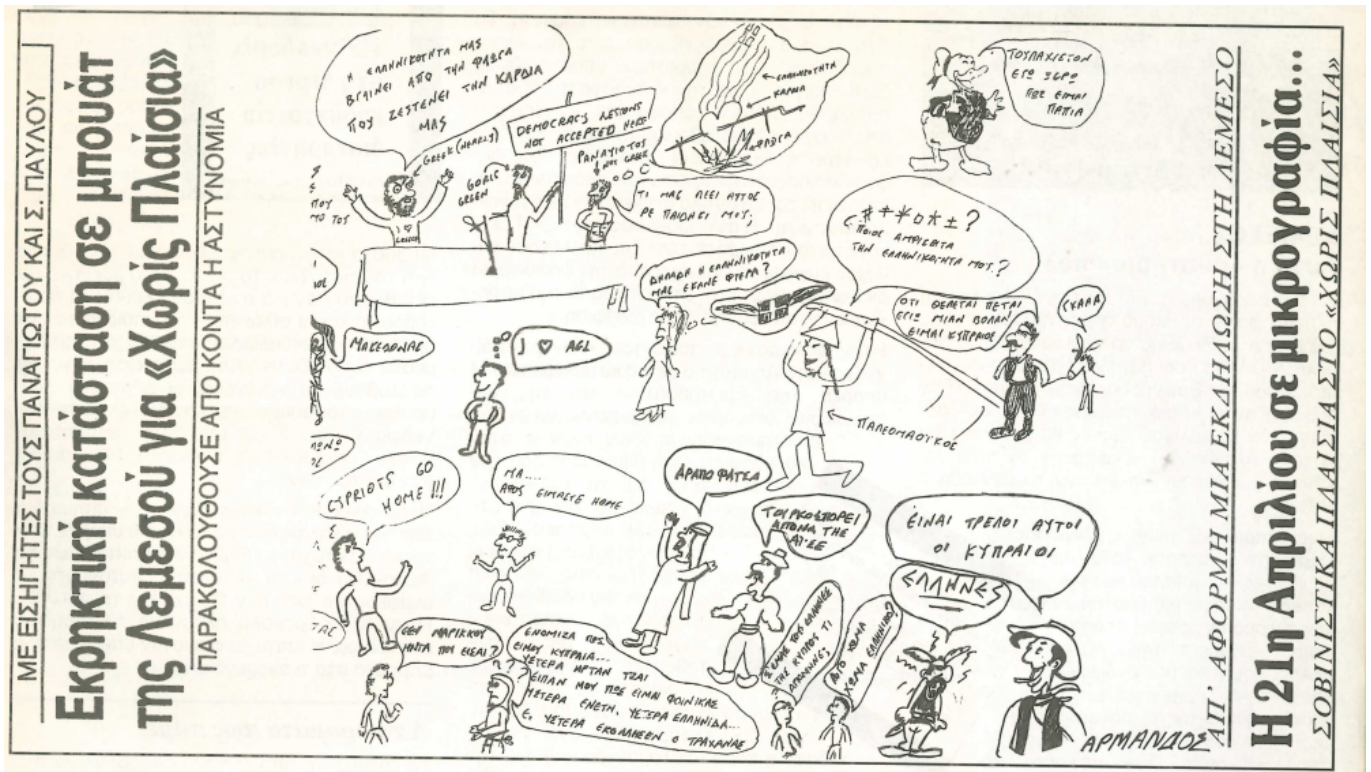 ΜΕ ΕΙΣΗΓΗΤΕΣ ΤΟΥΣ ΠΑΝΑΓΙΩΤΟΥ ΚΑΙ Σ. ΠΑΥΛΟΥ
Εκρηκτική κατάσταση σε μπουάτ
της Λεμεσού για «Χωρίς Πλαίσια»
ΠΑΡΑΚΟΛΟΥΘΟΥΣΕ ΑΠΟ ΚΟΝΤΑ Η ΑΣΤΥΝΟΜΙΑ
ΕΛΛΗΝΙΚΟΤΗΤΑ ΜΑΣ
ΒΓΑΙΝΕΙ ΑΠΟ ΤΗΝ
ΠΟΥ ΖΕΣΤΕΝΕΙ ΤΗΝ ΚΑΡΔΙΑ
ΜΑΣ
GREEK
DEMOCRACY LESSONS
NOT ACCEPTED HERE
GREEN
NOT GREEK
ΕΛΛΗΝΙΚΟΤΗΤΑ
ΚΑΡΔΙΑ
ΤΟΥΛΑΧΙΣΤΟΝ
ΕΓΩ ΞΕΡΩ
ΠΩΣ ΕΙΜΑΙ
ΠΑΠΙΑ
ΤΙ ΜΑΣ ΛΕΕΙ ΑΥΤΟΣ
ΡΕ ΠΑΙΔΑΚΙ ΜΟΥ.
ΔΗΛΑΔΗ Η ΕΛΛΗΝΙΚΟΤΗΤΑ
ΜΑΣ ΕΚΑΝΕ ΦΤΕΡΑ?
#+*o*±?
ΠΟΙΟΣ ΑΜΦΙΣΒΗΤΑ
ΤΗΝ ΕΛΛΗΝΙΚΟΤΗΤΑ ΜΟΥ.?
ΟΤΙ ΘΕΛΕΤΑΙ ΠΕΤΑΙ
ΕΓΙΩ ΜΙΑΝ ΒΟΛΑΝ
ΕΙΜΑΙ ΚΥΠΡΑΙΟΣ
ΓΚΑΑΑ
ΜΑΚΕΔΟΝΑΣ
I ♡ AEL
ΠΑΛΕΟΜΑΟΥΚΟΣ
CYPRIOTS GO
HOME !!!
ΜΑ....
ΑΦΟΥ ΕΙΜΑΣΤΕ HOME
ΑΡΑΠΟΦΑΤΣΑ
ΤΟΥΡΚΟΣΠΟΡΕΙ
ΕΙΝΑΙ ΤΡΕΛΟΙ ΑΥΤΟΙ
ΟΙ ΚΥΠΡΑΙΟΙ
ΕΛΛΗΝΕΣ
ΜΑΡΙΚΚΟΥ
ΕΙΣΑΙ?
ΕΝΟΜΙΖΑ ΠΩΣ
ΕΙΜΟΥ ΚΥΠΡΑΙΑ...
ΥΣΤΕΡΑ ΗΡΤΑΝ ΤΖΑΙ
ΕΙΠΑΝ ΜΟΥ ΠΩΣ ΕΙΜΑΙ ΦΟΙΝΙΚΑΣ
ΥΣΤΕΡΑ ΕΝΕΤΗ, ΥΣΤΕΡΑ ΕΛΛΗΝΙΔΑ...
Ε, ΥΣΤΕΡΑ ΕΚΟΛΛΗΣΕΝ Ο ΤΡΑΧΑΝΑΣ
ΧΩΜΑ ΕΛΛΗΝΙΚΟ?
ΑΡΜΑΝΔΟΣ
ΑΠ' ΑΦΟΡΜΗ ΜΙΑ ΕΚΔΗΛΩΣΗ ΣΤΗ ΛΕΜΕΣΟ
Η 21η Απριλίου σε μικρογραφία...
ΣΟΒΙΝΙΣΤΙΚΑ ΠΛΑΙΣΙΑ ΣΤΟ «ΧΩΡΙΣ ΠΛΑΙΣΙΑ»